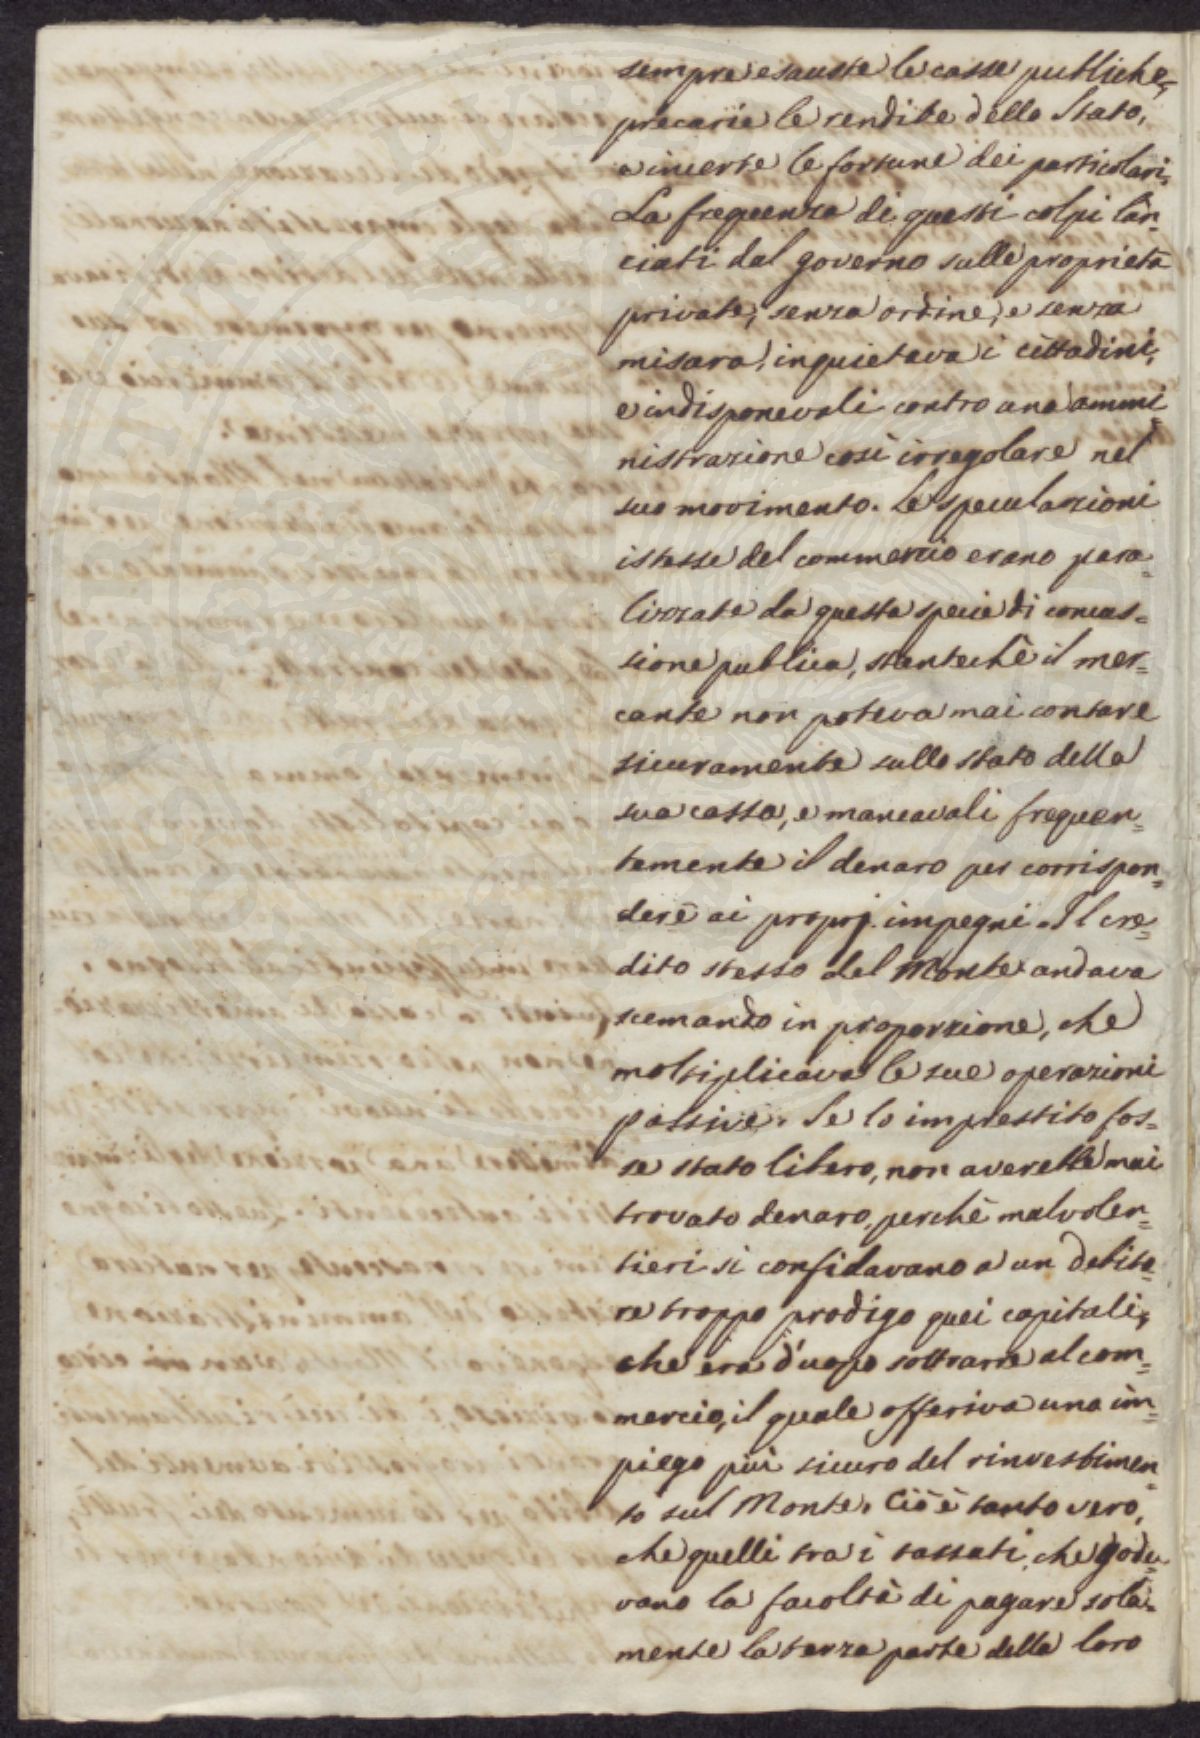 sempre esauste le casse publiche,
precarie le rendite dello Stato,
e incerte le fortune dei particolari.
La frequenza di questi colpi lan=
ciati dal governo sulle proprietà
private, senza ordine, e senza
misura, inquietava i cittadini,
e indisponevali contro una ammi=
nistrazione così irregolare nel
suo movimento. Le speculazioni
istesse del commercio erano para=
lizzate da questa specie di concus=
sione publica, stantechè il mer=
cante non poteva mai contare
sicuramente sullo stato della
sua cassa, e mancavali frequen=
temente il denaro per corrispon=
dere ai proprj impegni. Il cre=
dito stesso del Monte andava
scemando in proporzione, che
moltiplicava le sue operazioni
passive. Se lo imprestito fos=
se stato libero, non averebbe mai
trovato denaro, perchè malvolen=
tieri si confidavano a un debito=
re troppo prodigo quei capitali,
che era d'uopo sottrarre al com=
mercio, il quale offeriva una im=
piego più sicuro del rinvestimen=
to sul Monte. Ciò è tanto vero,
che quelli tra i tassati, che gode=
vano la facoltà di pagare sola=
mente la terza parte della loro